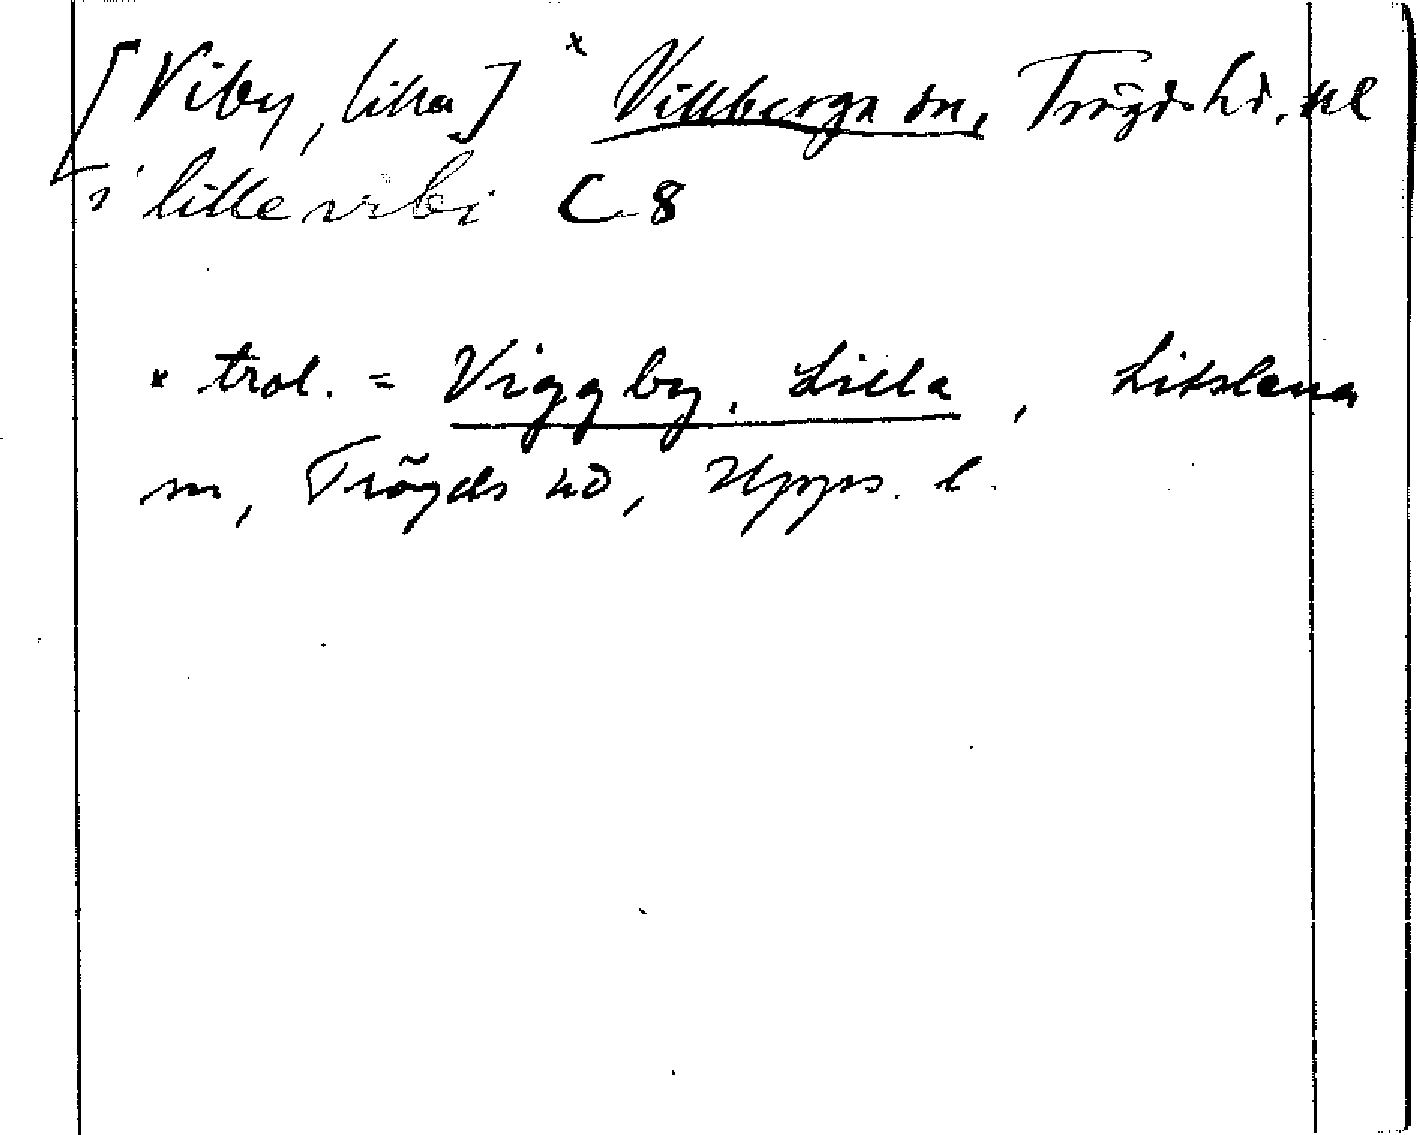 [Viby, lilla] x Villberga sn, Trögds hd. Ul
i lille vibi C 8
x trol. = Viggby, Lilla, Litslena
sn, Trögds hd, Upps. l.